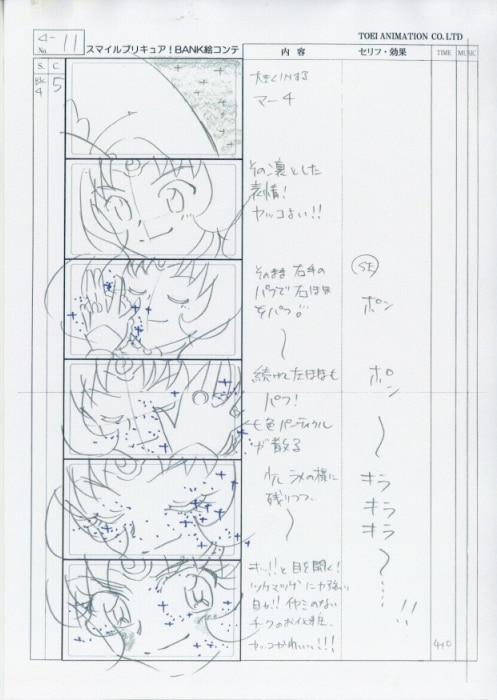 TOEI ANIMATION CO. LTD
No. 11
スマイルプリキュア！BANK絵コンテ
内 容
セリフ・効果
TIME
MUSIC
S.
C
BK
4
5
大きくINする
マーチ
その凛とした
表情！
カッコよい!!
そのまま 右手の
パフで右ほほ
をパフ!
SE
ポン
続けて左ほほも
パフ！
七色パーティクル
が散る
ポン
ラメの様に
残りつつ、
キラ
キラ
キラ
と目を開く！
ツケマツゲに力強い
イヤミのない
チークのお化粧。
カッコかわいい!!!
4+0